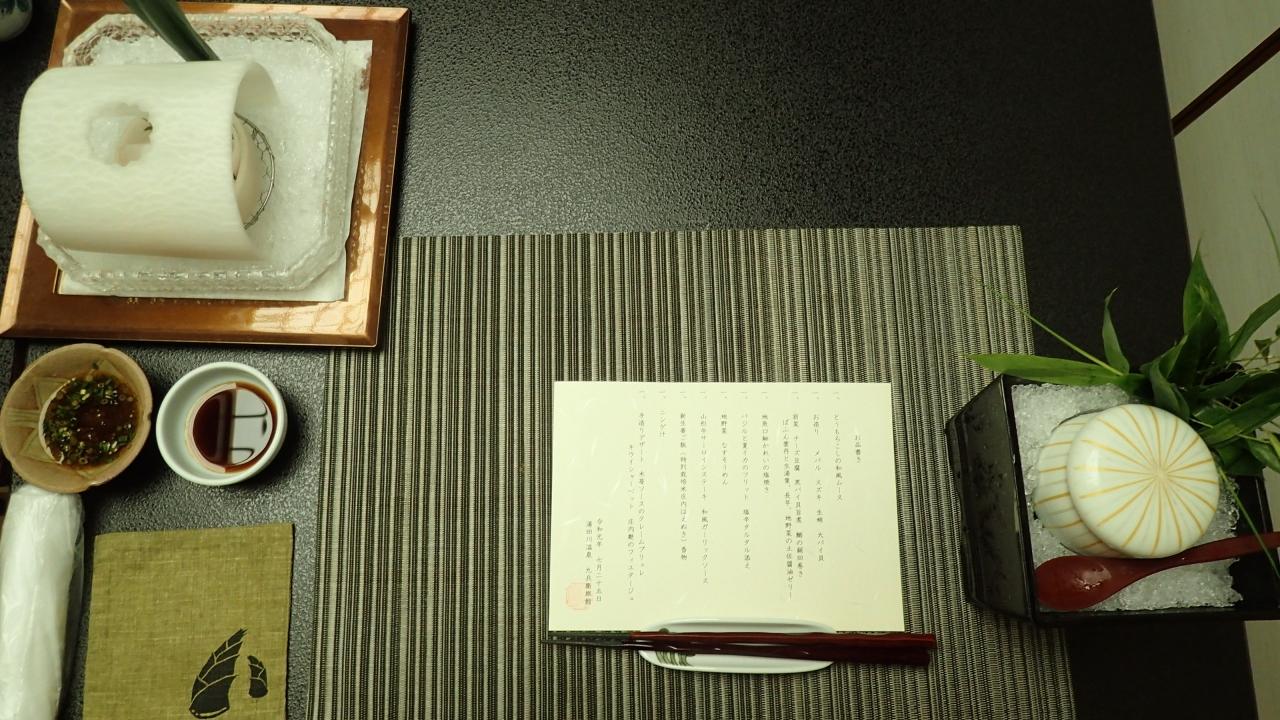 お品書き
一、とうもろこしの和風ムース
一、お造り メバル スズキ 生蛸 大バイ貝
一、前菜 チーズ豆腐 黒バイ貝旨煮 鯛の錦田巻き
ばふん雲丹と生湯葉、長芋、地野菜の土佐醤油ゼリー
一、地魚口細かれいの塩焼き
一、バジルと夏イカのフリット 塩辛タルタル添え
一、地野菜 なすそうめん
一、山形牛サーロインステーキ 和風ガーリックソース
一、新生姜ご飯(特別栽培米庄内はえぬき)香物
一、ニンゲ汁
一、手造りデザート 木苺ソースのクレームブリュレ
キウイシャーベット 庄内麩のフィナンジェ
令和元年 七月二十五日
湯田川温泉 九兵衛旅館